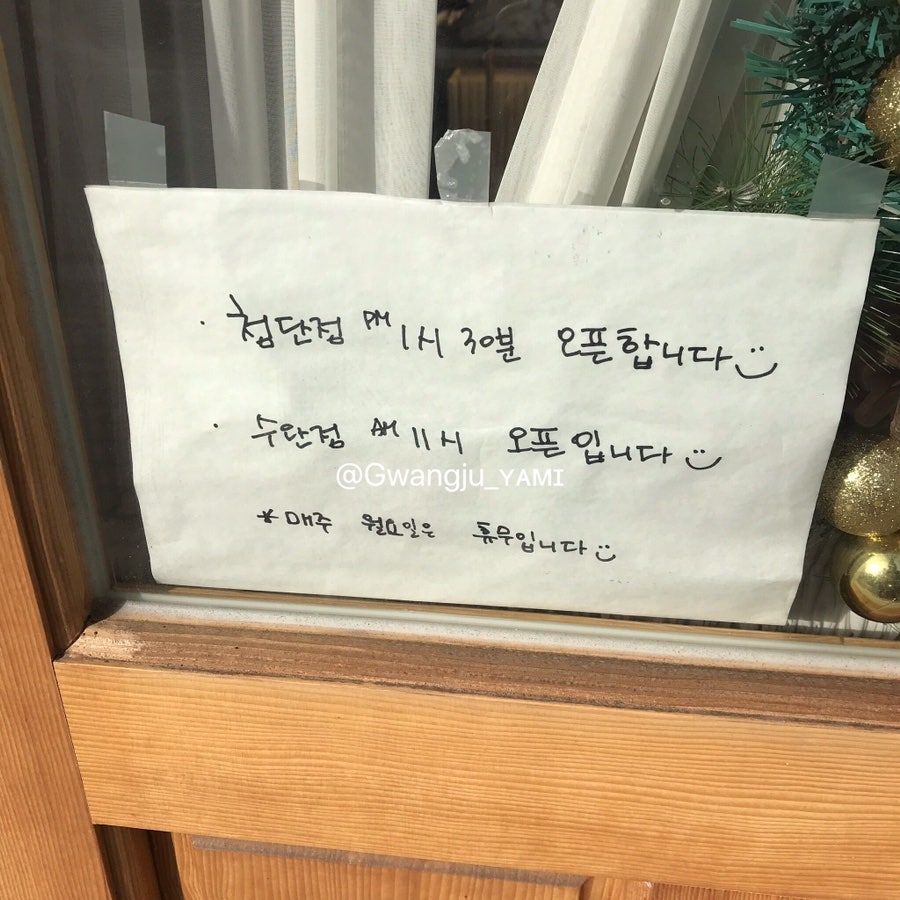 · 첨단점 PM 1시 30분 오픈합니다
· 수완점 AM 11시 오픈입니다
@Gwangju_YAMI
* 매주 월요일은 휴무입니다